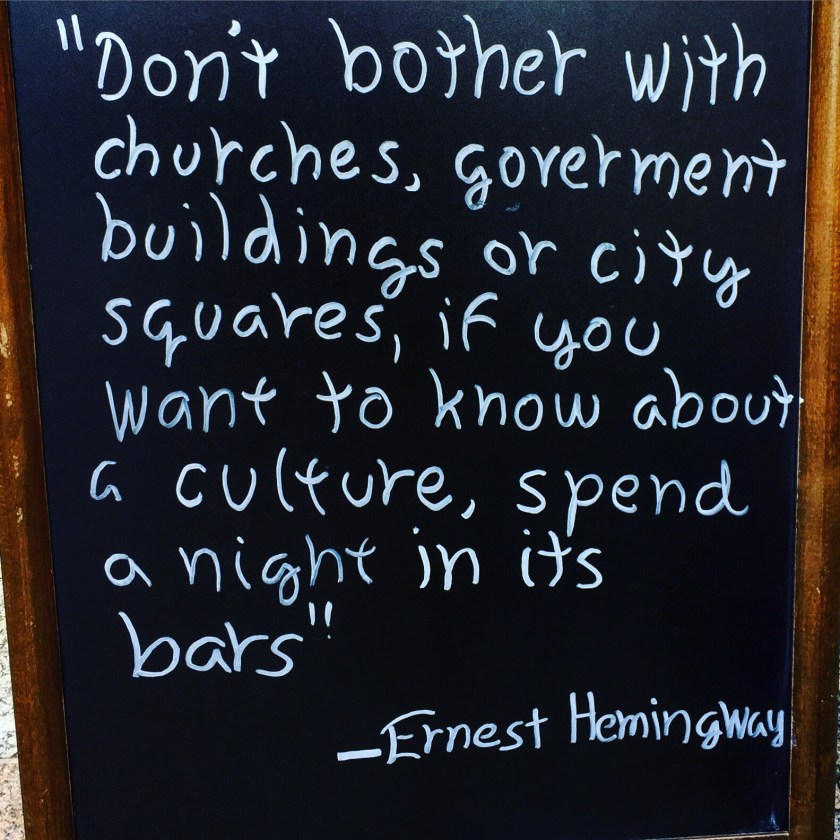 "Don't bother with
churches, goverment
buildings or city
squares, if you
want to know about
a culture, spend
a night in its
bars"
—Ernest Hemingway